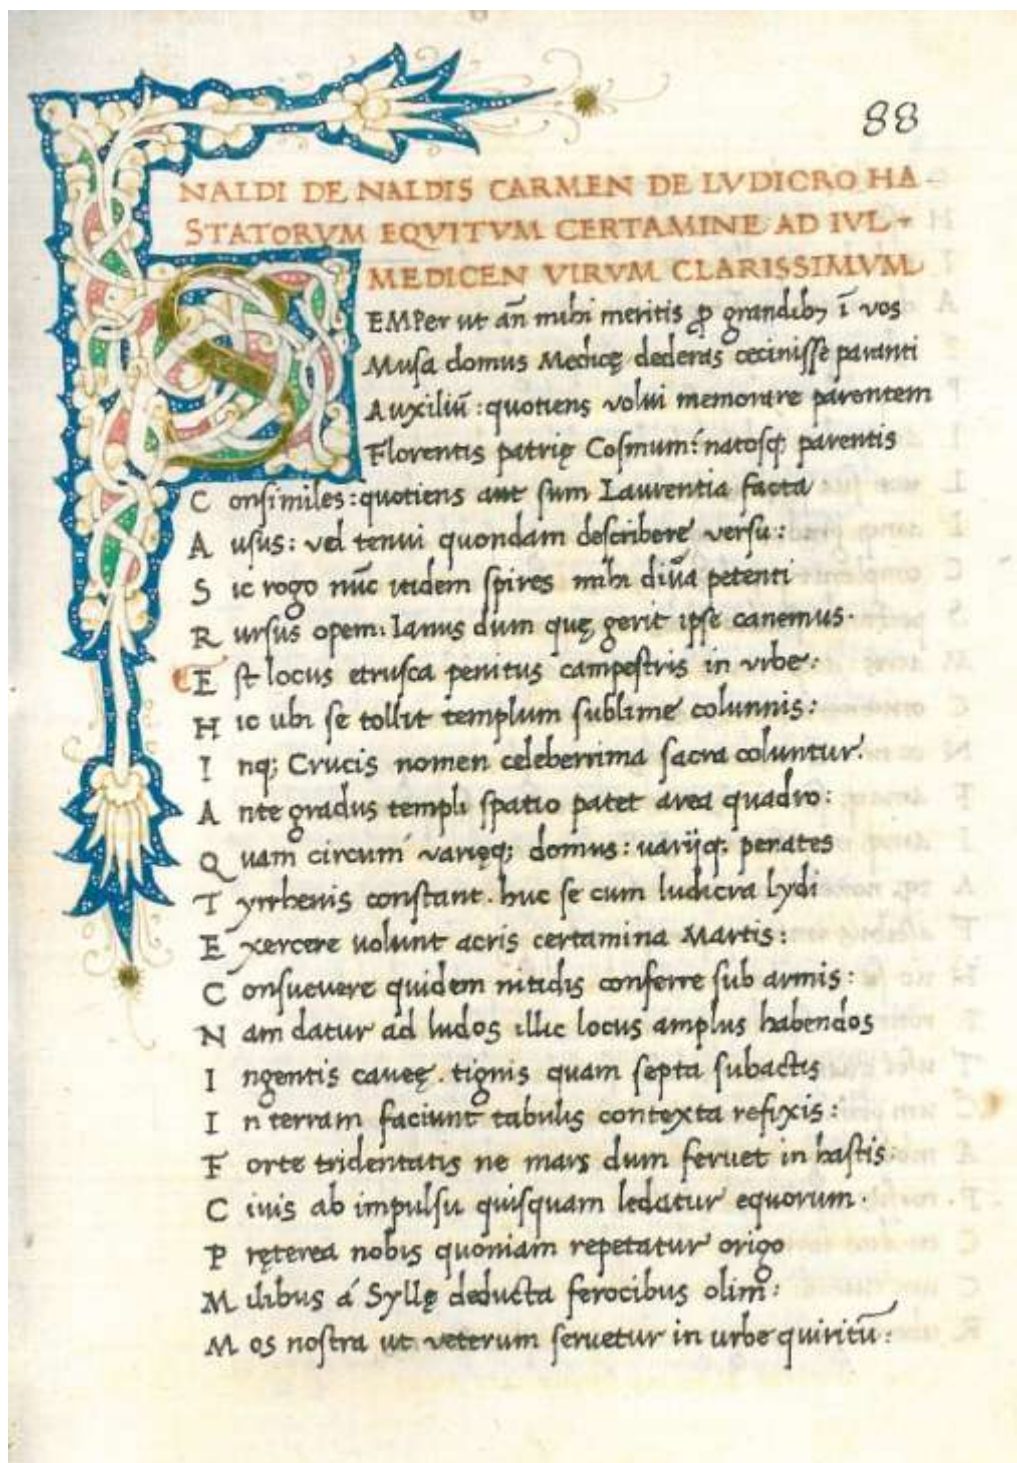 88
NALDI DE NALDIS CARMEN DE LVDICRO HA-
STATORVM EQVITVM CERTAMINE AD IVL
MEDICEN VIRVM CLARISSIMVM
SEMPer ut añ mihi meritis ꝓ grandibꝫ ĩ vos
Musa domus Medicę dederas cecinisse paranti
Auxiliũ: quotiens volui memorare parentem
Florentis patrię Cosmum: natosqꝫ parentis
Consimiles: quotiens aut sum Laurentia facta
Ausus: vel tenui quondam describere versu:
Sic rogo nũc itidem spires mihi diũa petenti
Rursus opem: Ianus dum quę gerit ipse canemus.
Est locus etrusca penitus campestris in vrbe:
Hic ubi se tollit templum sublime colunnis:
Inq; Crucis nomen celeberrima sacra coluntur.
Ante gradus templi spatio patet area quadro:
Quam circum varięq; domus: uarijq; penates
Tyrrhenis constant. huc se cum ludicra Lydi
Exercere uolunt acris certamina Martis:
Consueuere quidem nitidis conferre sub armis:
Nam datur ad ludos illic locus amplus habendos
Ingentis caueę. tignis quam septa subactis
In terram faciunt tabulis contexta refixis:
Forte tridentatis ne mars dum feruet in hastis
Ciuis ab impulsu quisquam ledatur equorum.
Pręterea nobis quoniam repetatur origo
Milibus á Syllę deducta ferocibus olim:
Mos nostra ut veterum seruetur in urbe quiritũ: